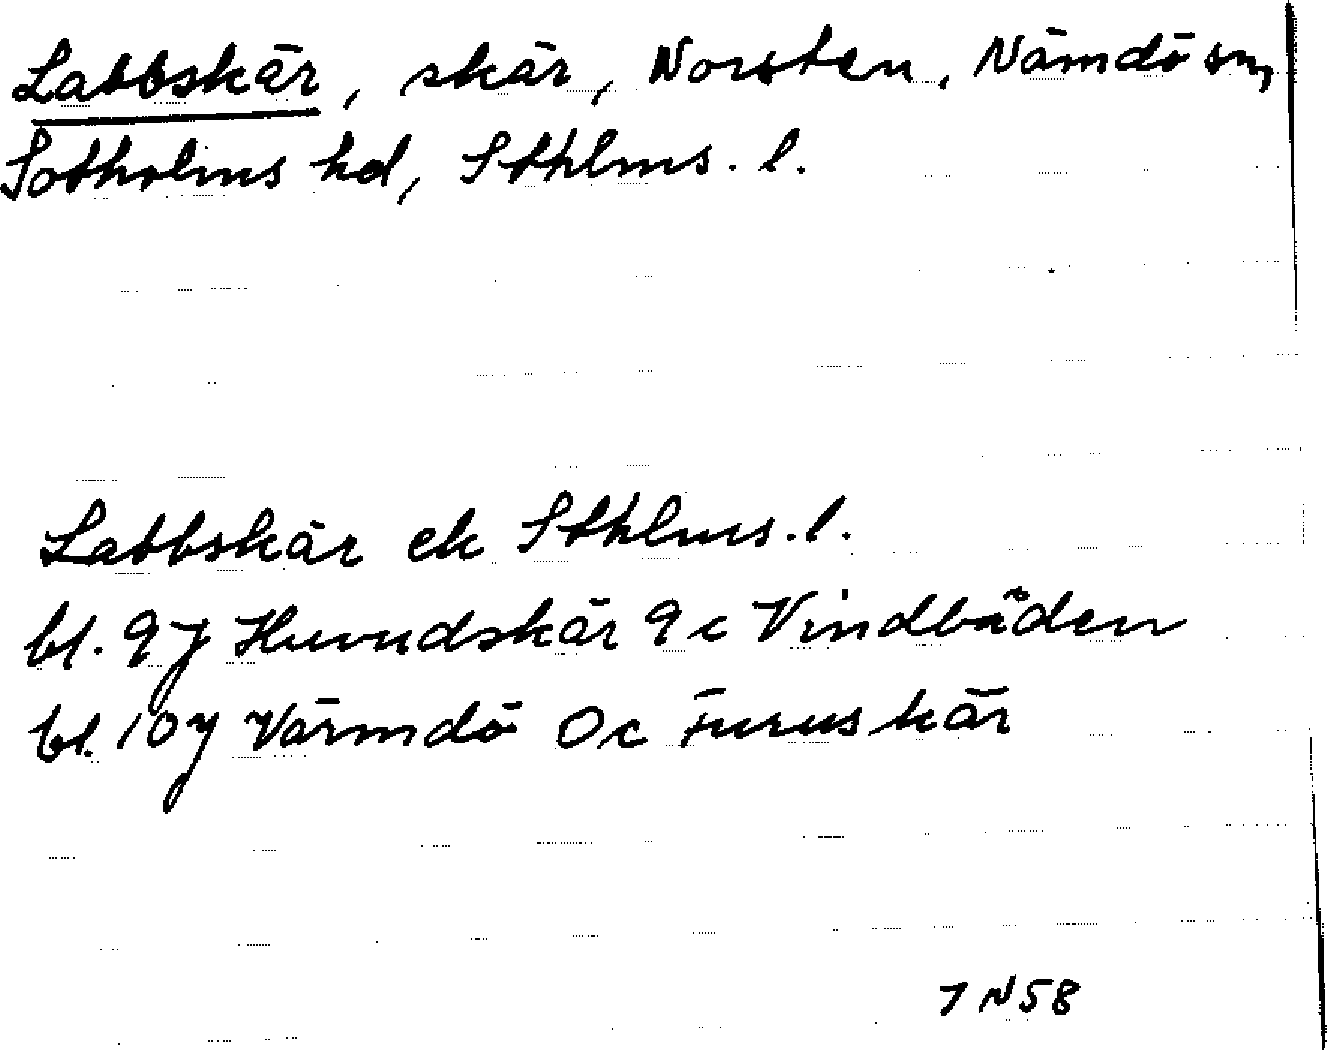 Labbskär, skär, Norsten, Nämdö sn,
Sotholms hd, Sthlms. l.
Labbskär ek Sthlms. l.
bl. 9J Huvudskär 9c Vindbåden
bl. 10J Värmdö 0c Furuskär
7 N58